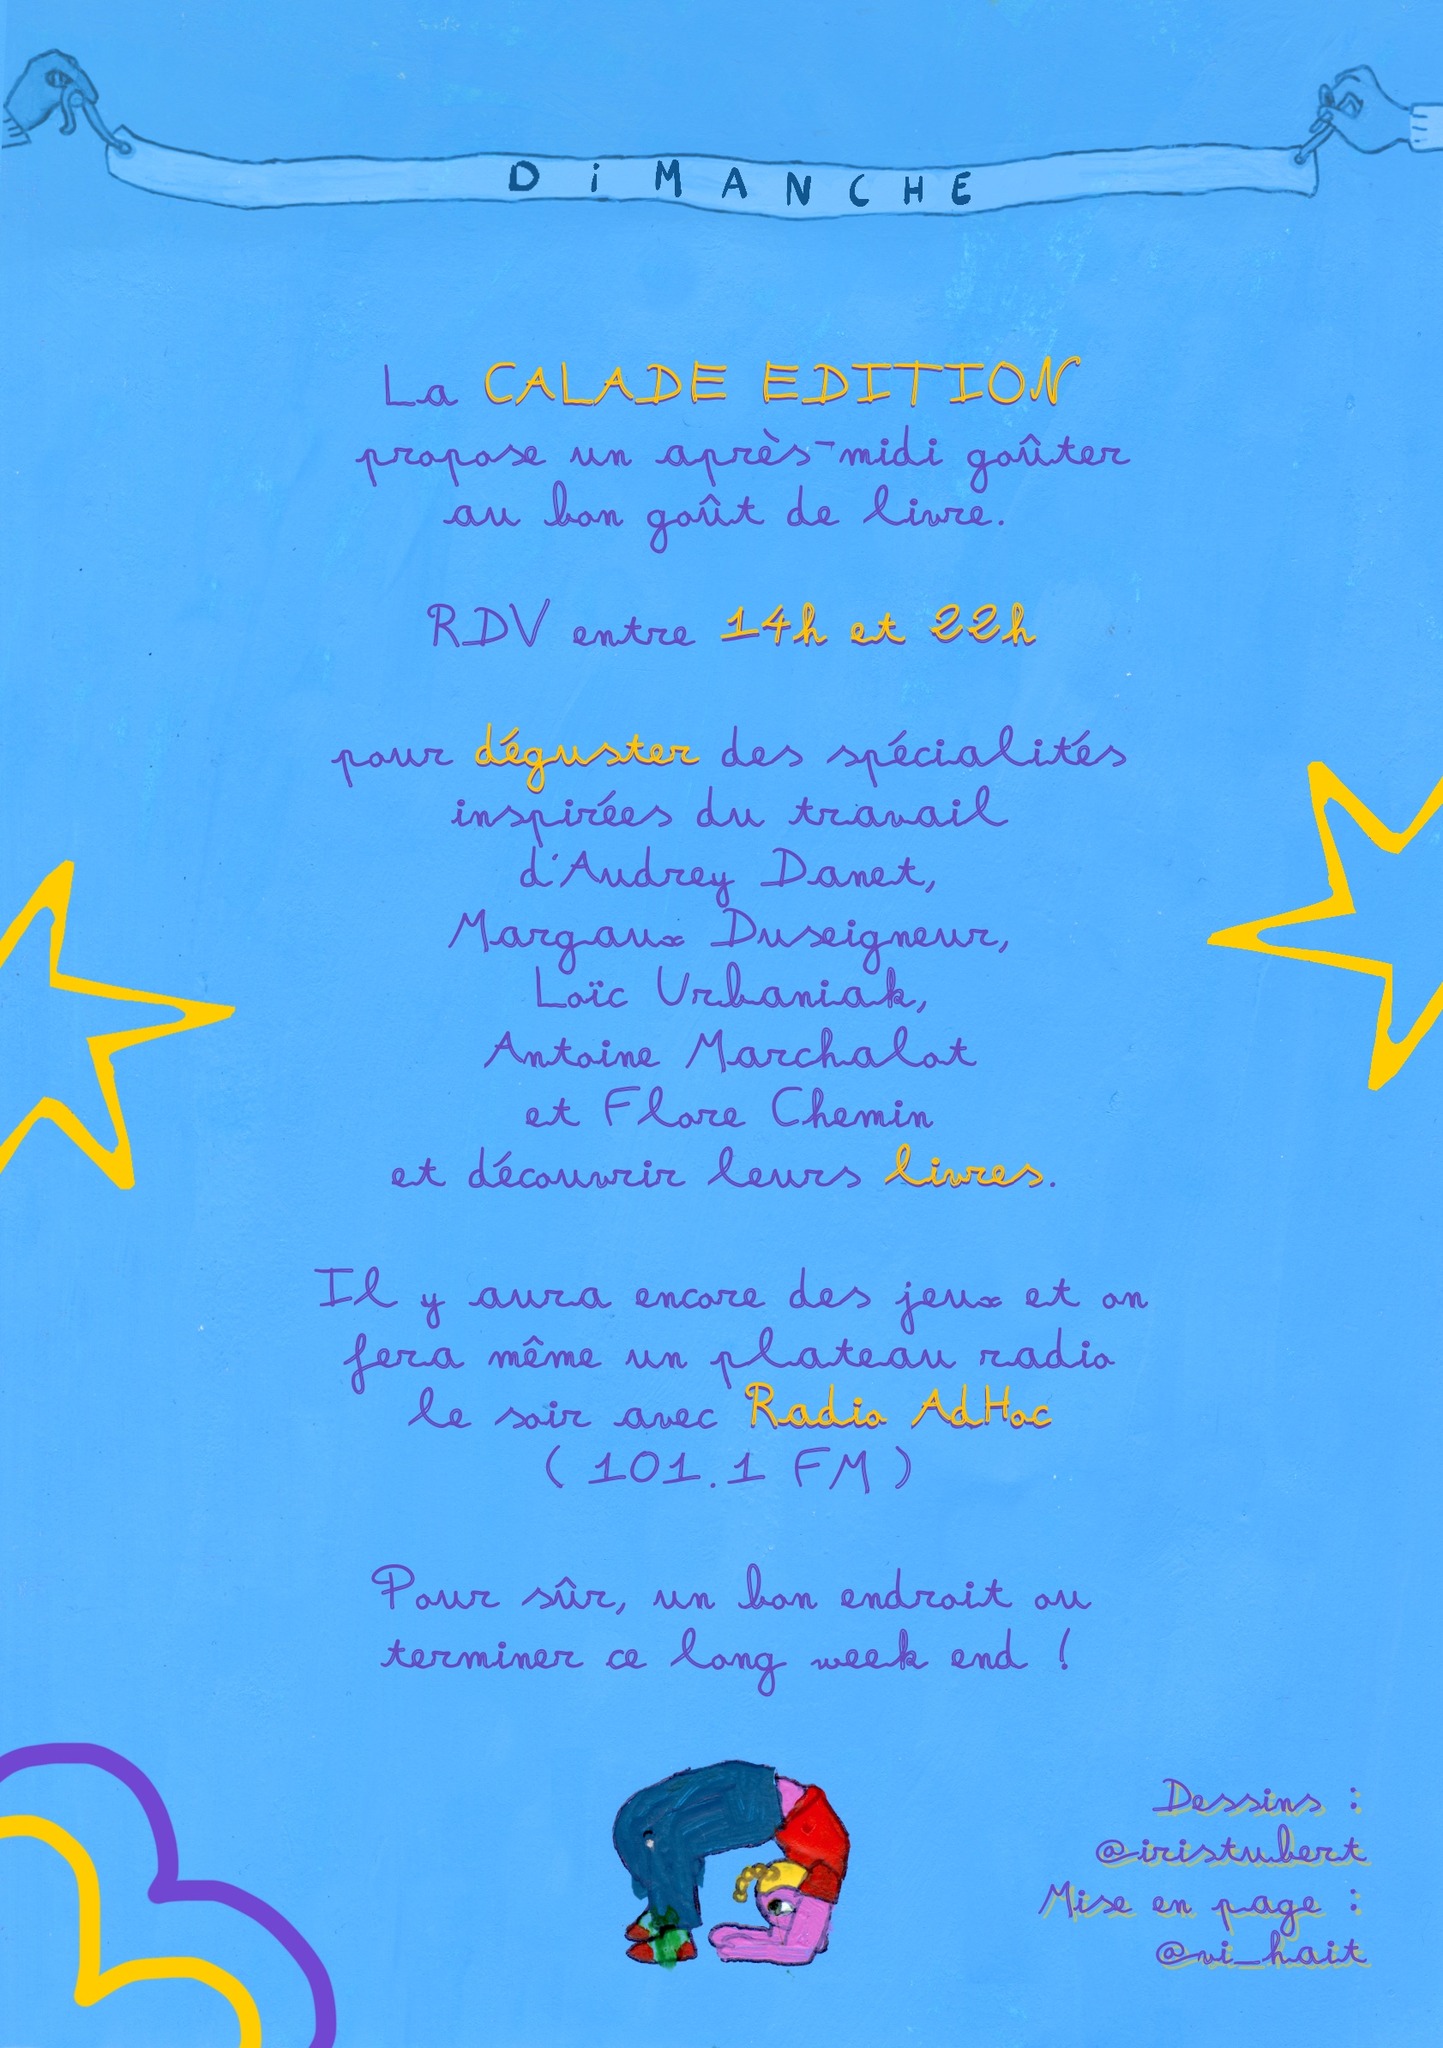 DiMANCHE
La CALADE EDITION
propose un après-midi goûter
au bon goût de livre.
RDV entre 14h et 22h
pour déguster des spécialités
inspirées du travail
d'Audrey Danet,
Margaux Duseigneur,
Loïc Urbaniak,
Antoine Marchalot
et Flore Chemin
et découvrir leurs livres.
Il y aura encore des jeux et on
fera même un plateau radio
le soir avec Radio AdHoc
(101.1 FM)
Pour sûr, un bon endroit ou
terminer ce long week end !
Dessins :
@iristubert
Mise en page :
@vi_hait